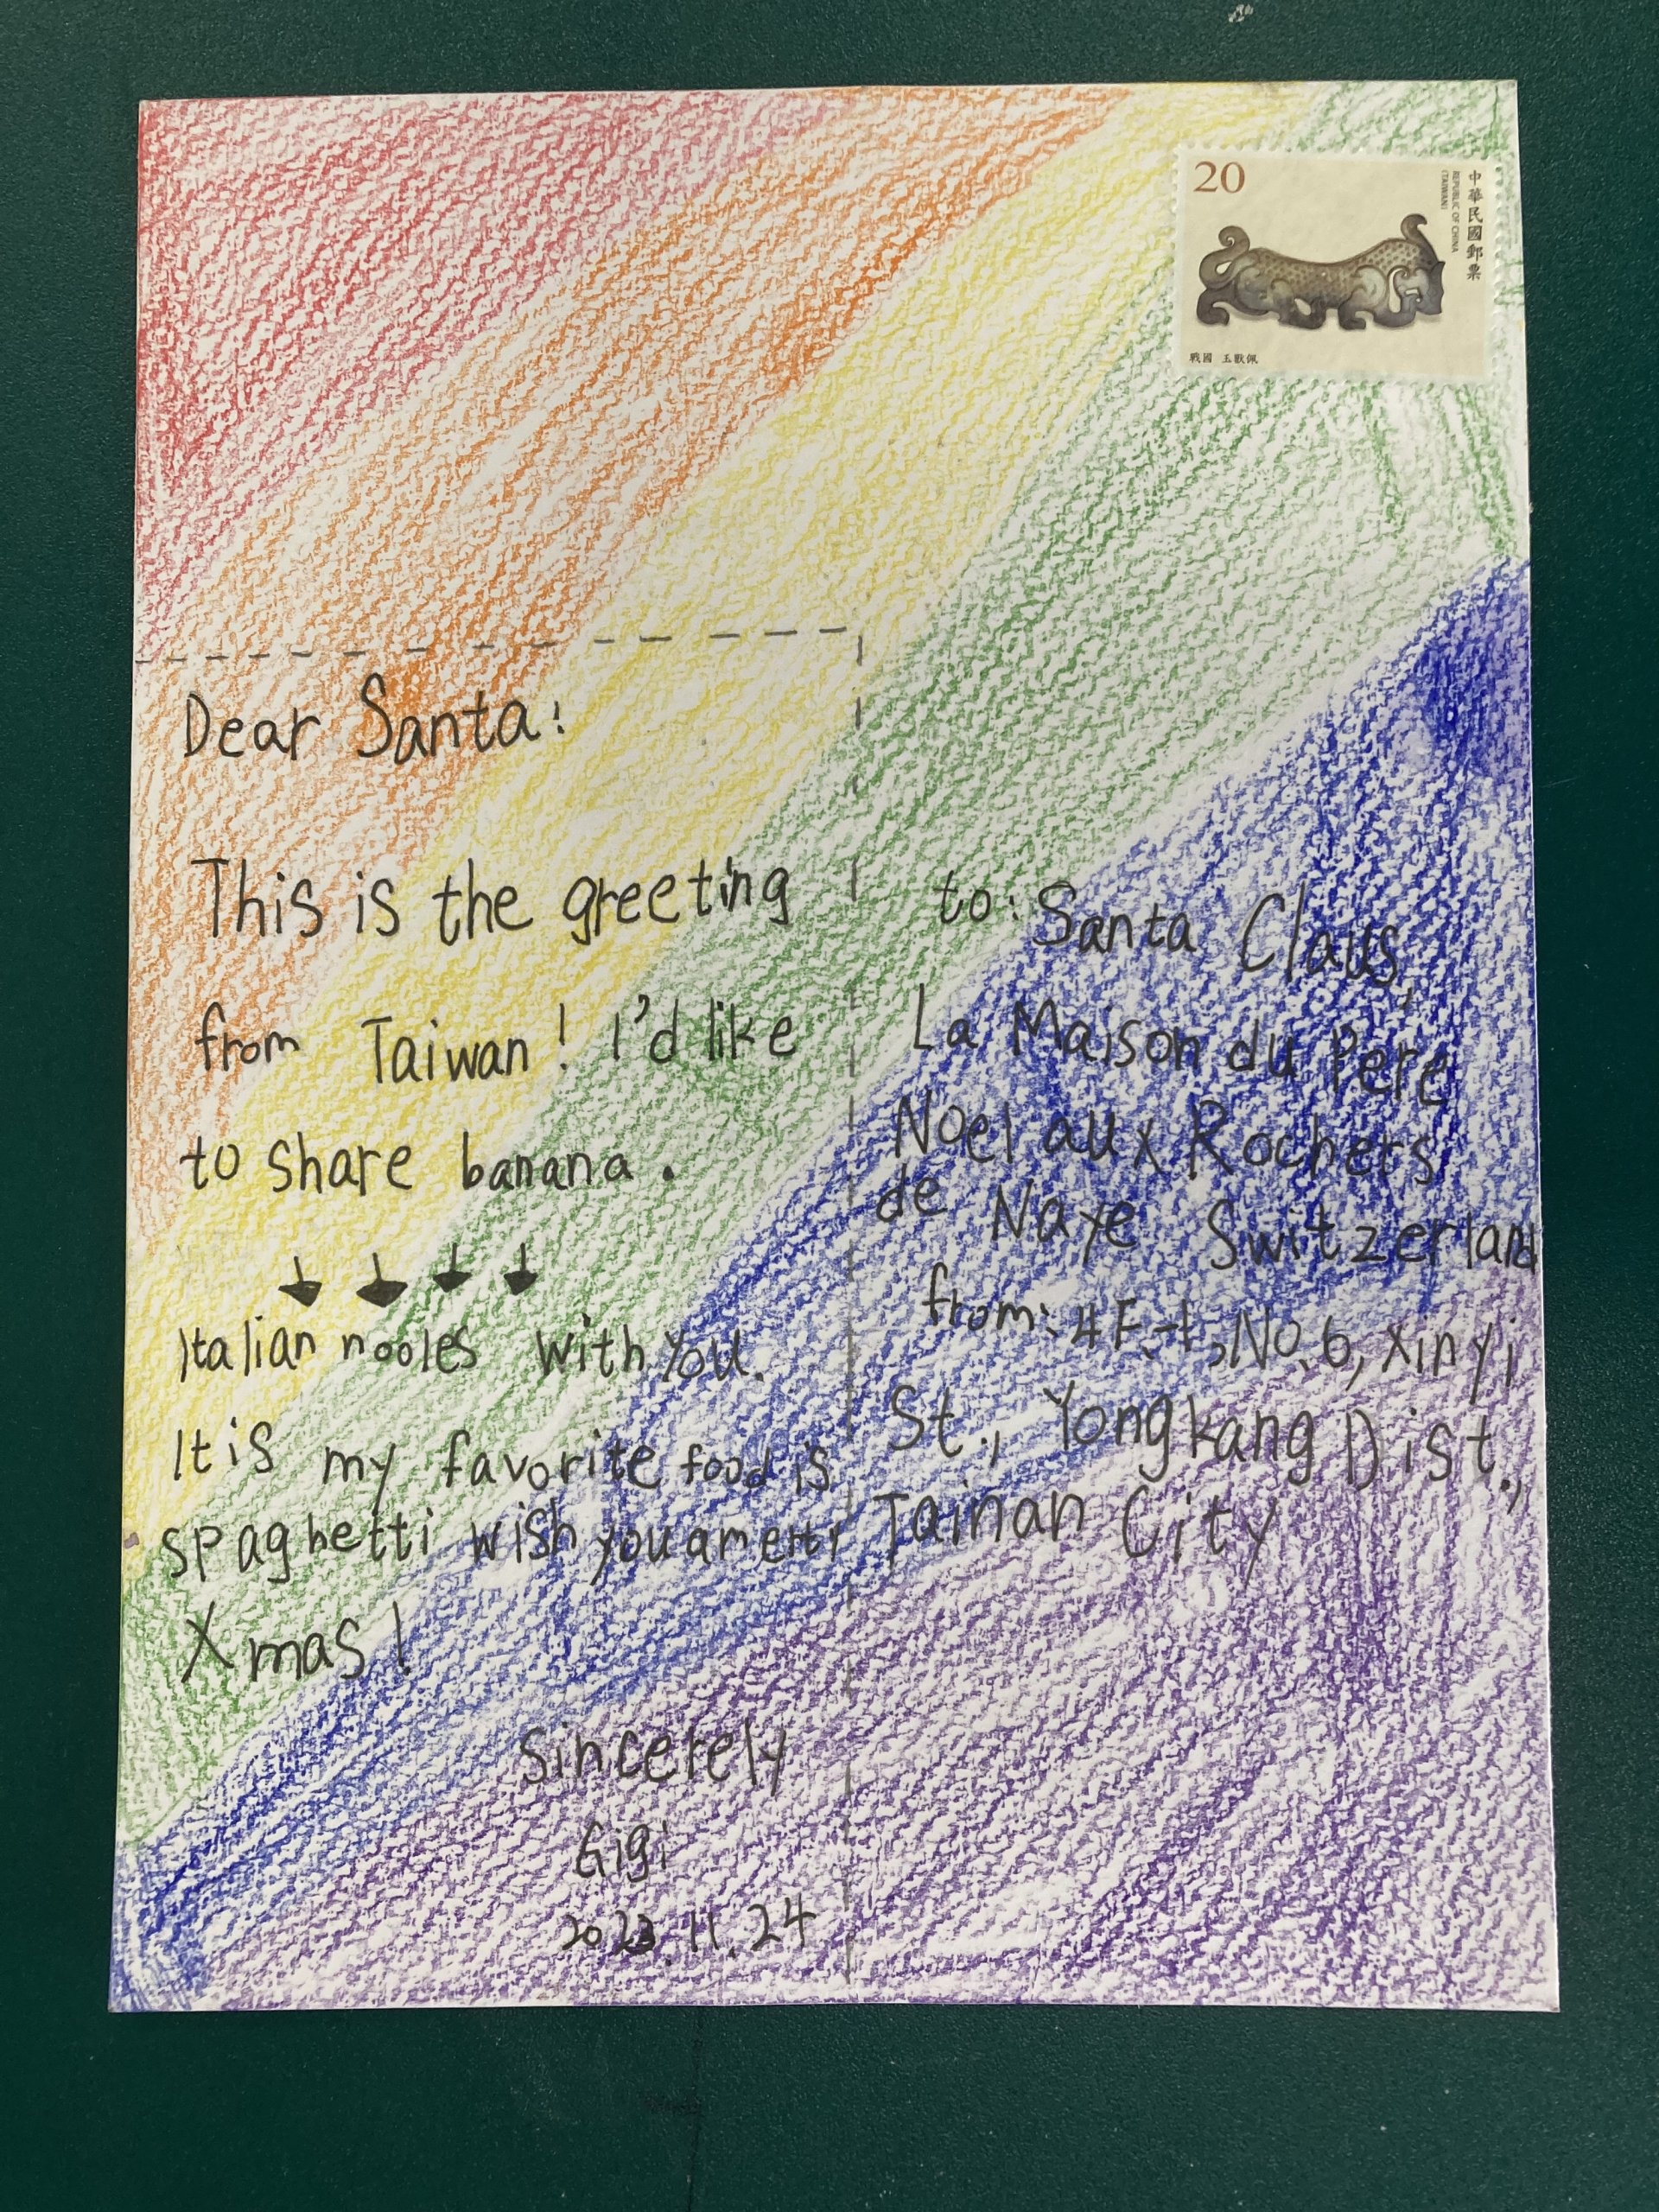 20
中華民國郵票
REPUBLIC OF CHINA
(TAIWAN)
戰國 玉獸佩
Dear Santa:
This is the greeting
from Taiwan! I'd like
to share banana.
Italian nooles with you.
It is my favorite food is
spaghetti wish you a merry
Xmas!
Sincerely
Gigi
2023.11.24
to: Santa Claus,
La Maison du Pere
Noel aux Rochers
de Naye Switzerland
from: 4F.-1, No.6, Xinyi
St., Yongkang Dist.,
Tainan City